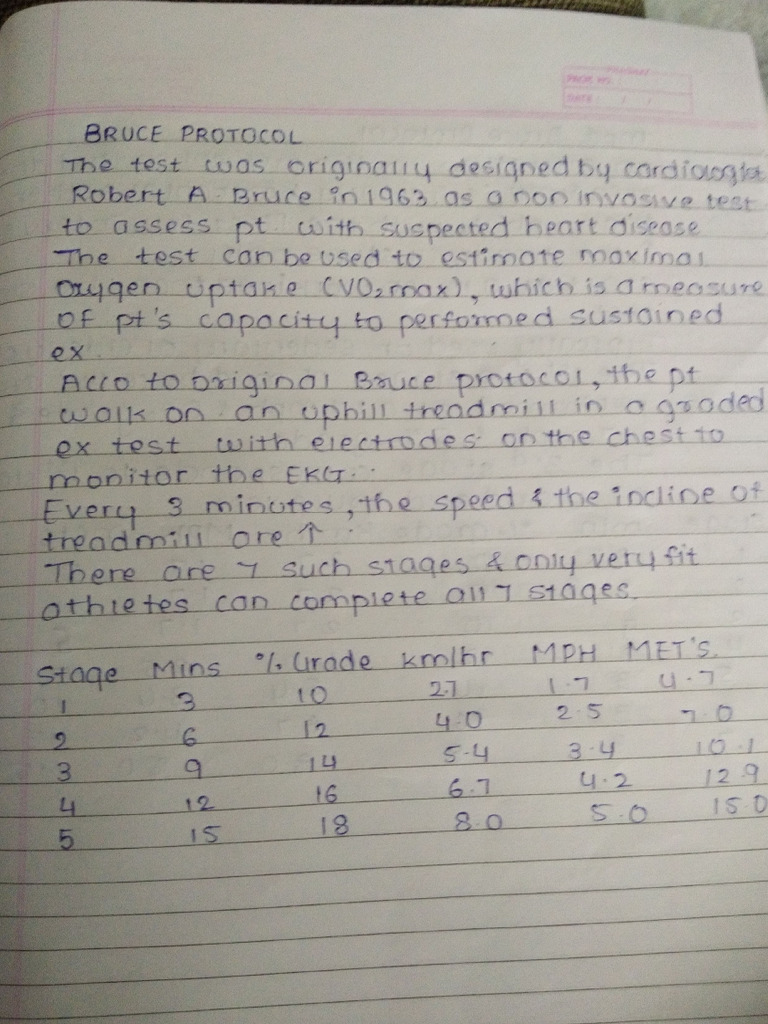 PAGE NO.
DATE: / /
BRUCE PROTOCOL
The test was originally designed by cardiologist
Robert A. Bruce in 1963 as a non invasive test
to assess pt with suspected heart disease
The test can be used to estimate maximal
oxygen uptake (VO₂max), which is a measure
of pt's capacity to performed sustained
ex.
Acco to original Bruce protocol, the pt
walk on an uphill treadmill in a graded
ex test with electrodes on the chest to
monitor the EKG.
Every 3 minutes, the speed & the incline of
treadmill are ↑
There are 7 such stages & only very fit
athletes can complete all 7 stages.
Stage Mins % Grade km/hr MPH MET'S.
1 3 10 2.7 1.7 4.7
2 6 12 4.0 2.5 7.0
3 9 14 5.4 3.4 10.1
4 12 16 6.7 4.2 12.9
5 15 18 8.0 5.0 15.0